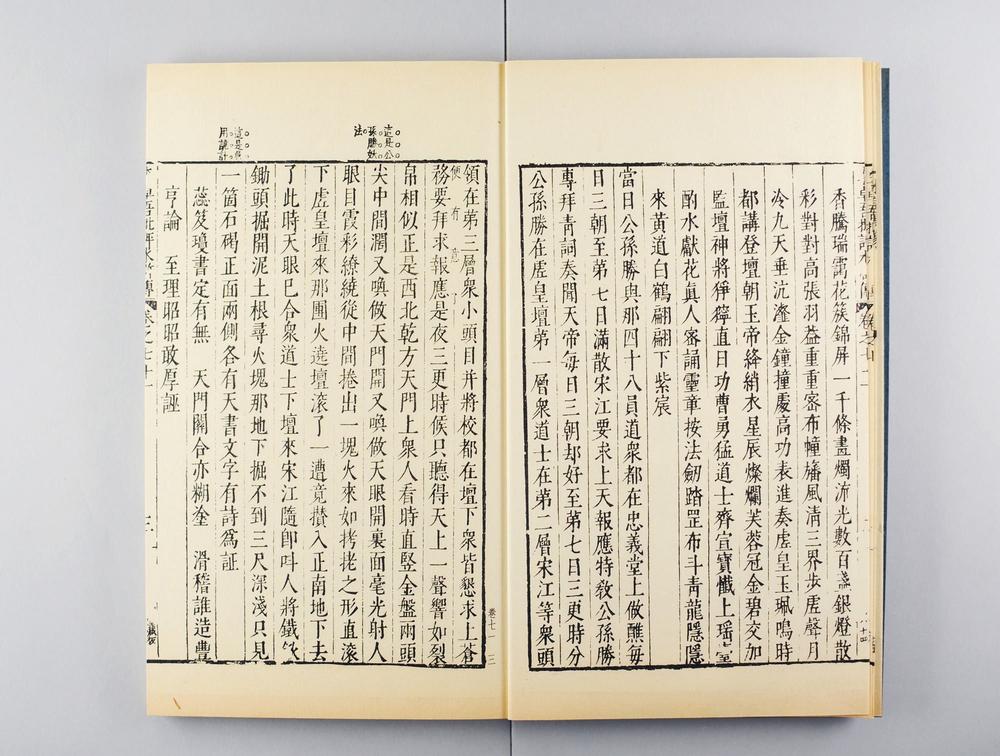 香騰瑞靄花簇錦屏一千條畫燭流光數百盞銀燈散
彩對對高張羽蓋重重密布幢旛風清三界步虛聲月
冷九天垂沆瀣金鐘撞處高功表進奏虛皇玉珮鳴時
都講登壇朝玉帝絳綃衣星辰燦爛芙蓉冠金碧交加
監壇神將猙獰直日功曹勇猛道士齊宣寶懺上瑶臺
酌水獻花真人密誦靈章按法劍踏罡布斗青龍隱隱
來黃道白鶴翩翩下紫宸
當日公孫勝與那四十八員道衆都在忠義堂上做醮每
日三朝至第七日滿散宋江要求上天報應特教公孫勝
專拜青詞奏聞天帝每日三朝却好至第七日三更時分
公孫勝在虛皇壇第一層衆道士在第二層宋江等衆頭
領在第三層衆小頭目并將校都在壇下衆皆懇求上蒼
務要拜求報應是夜三更時候只聽得天上一聲響如裂
帛相似正是西北乾方天門上衆人看時直竪金盤兩頭
尖中間濶又喚做天門開又喚做天眼開裏面毫光射人
眼目霞彩繚繞從中間捲出一塊火來如栲栳之形直滾
下虛皇壇來那團火遶壇滾了一遭竟攢入正南地下去
了此時天眼已合衆道士下壇來宋江隨卽叫人將鐵
鋤頭掘開泥土根尋火塊那地下掘不到三尺深淺只見
一箇石碣正面兩側各有天書文字有詩爲証
蕊笈瓊書定有無 天門闔合亦糊塗 滑稽誰造豐
亨論 至理昭昭敢厚誣
這是公
孫勝妖
法
這是
用
便有
卷七一 三
卷之七十一